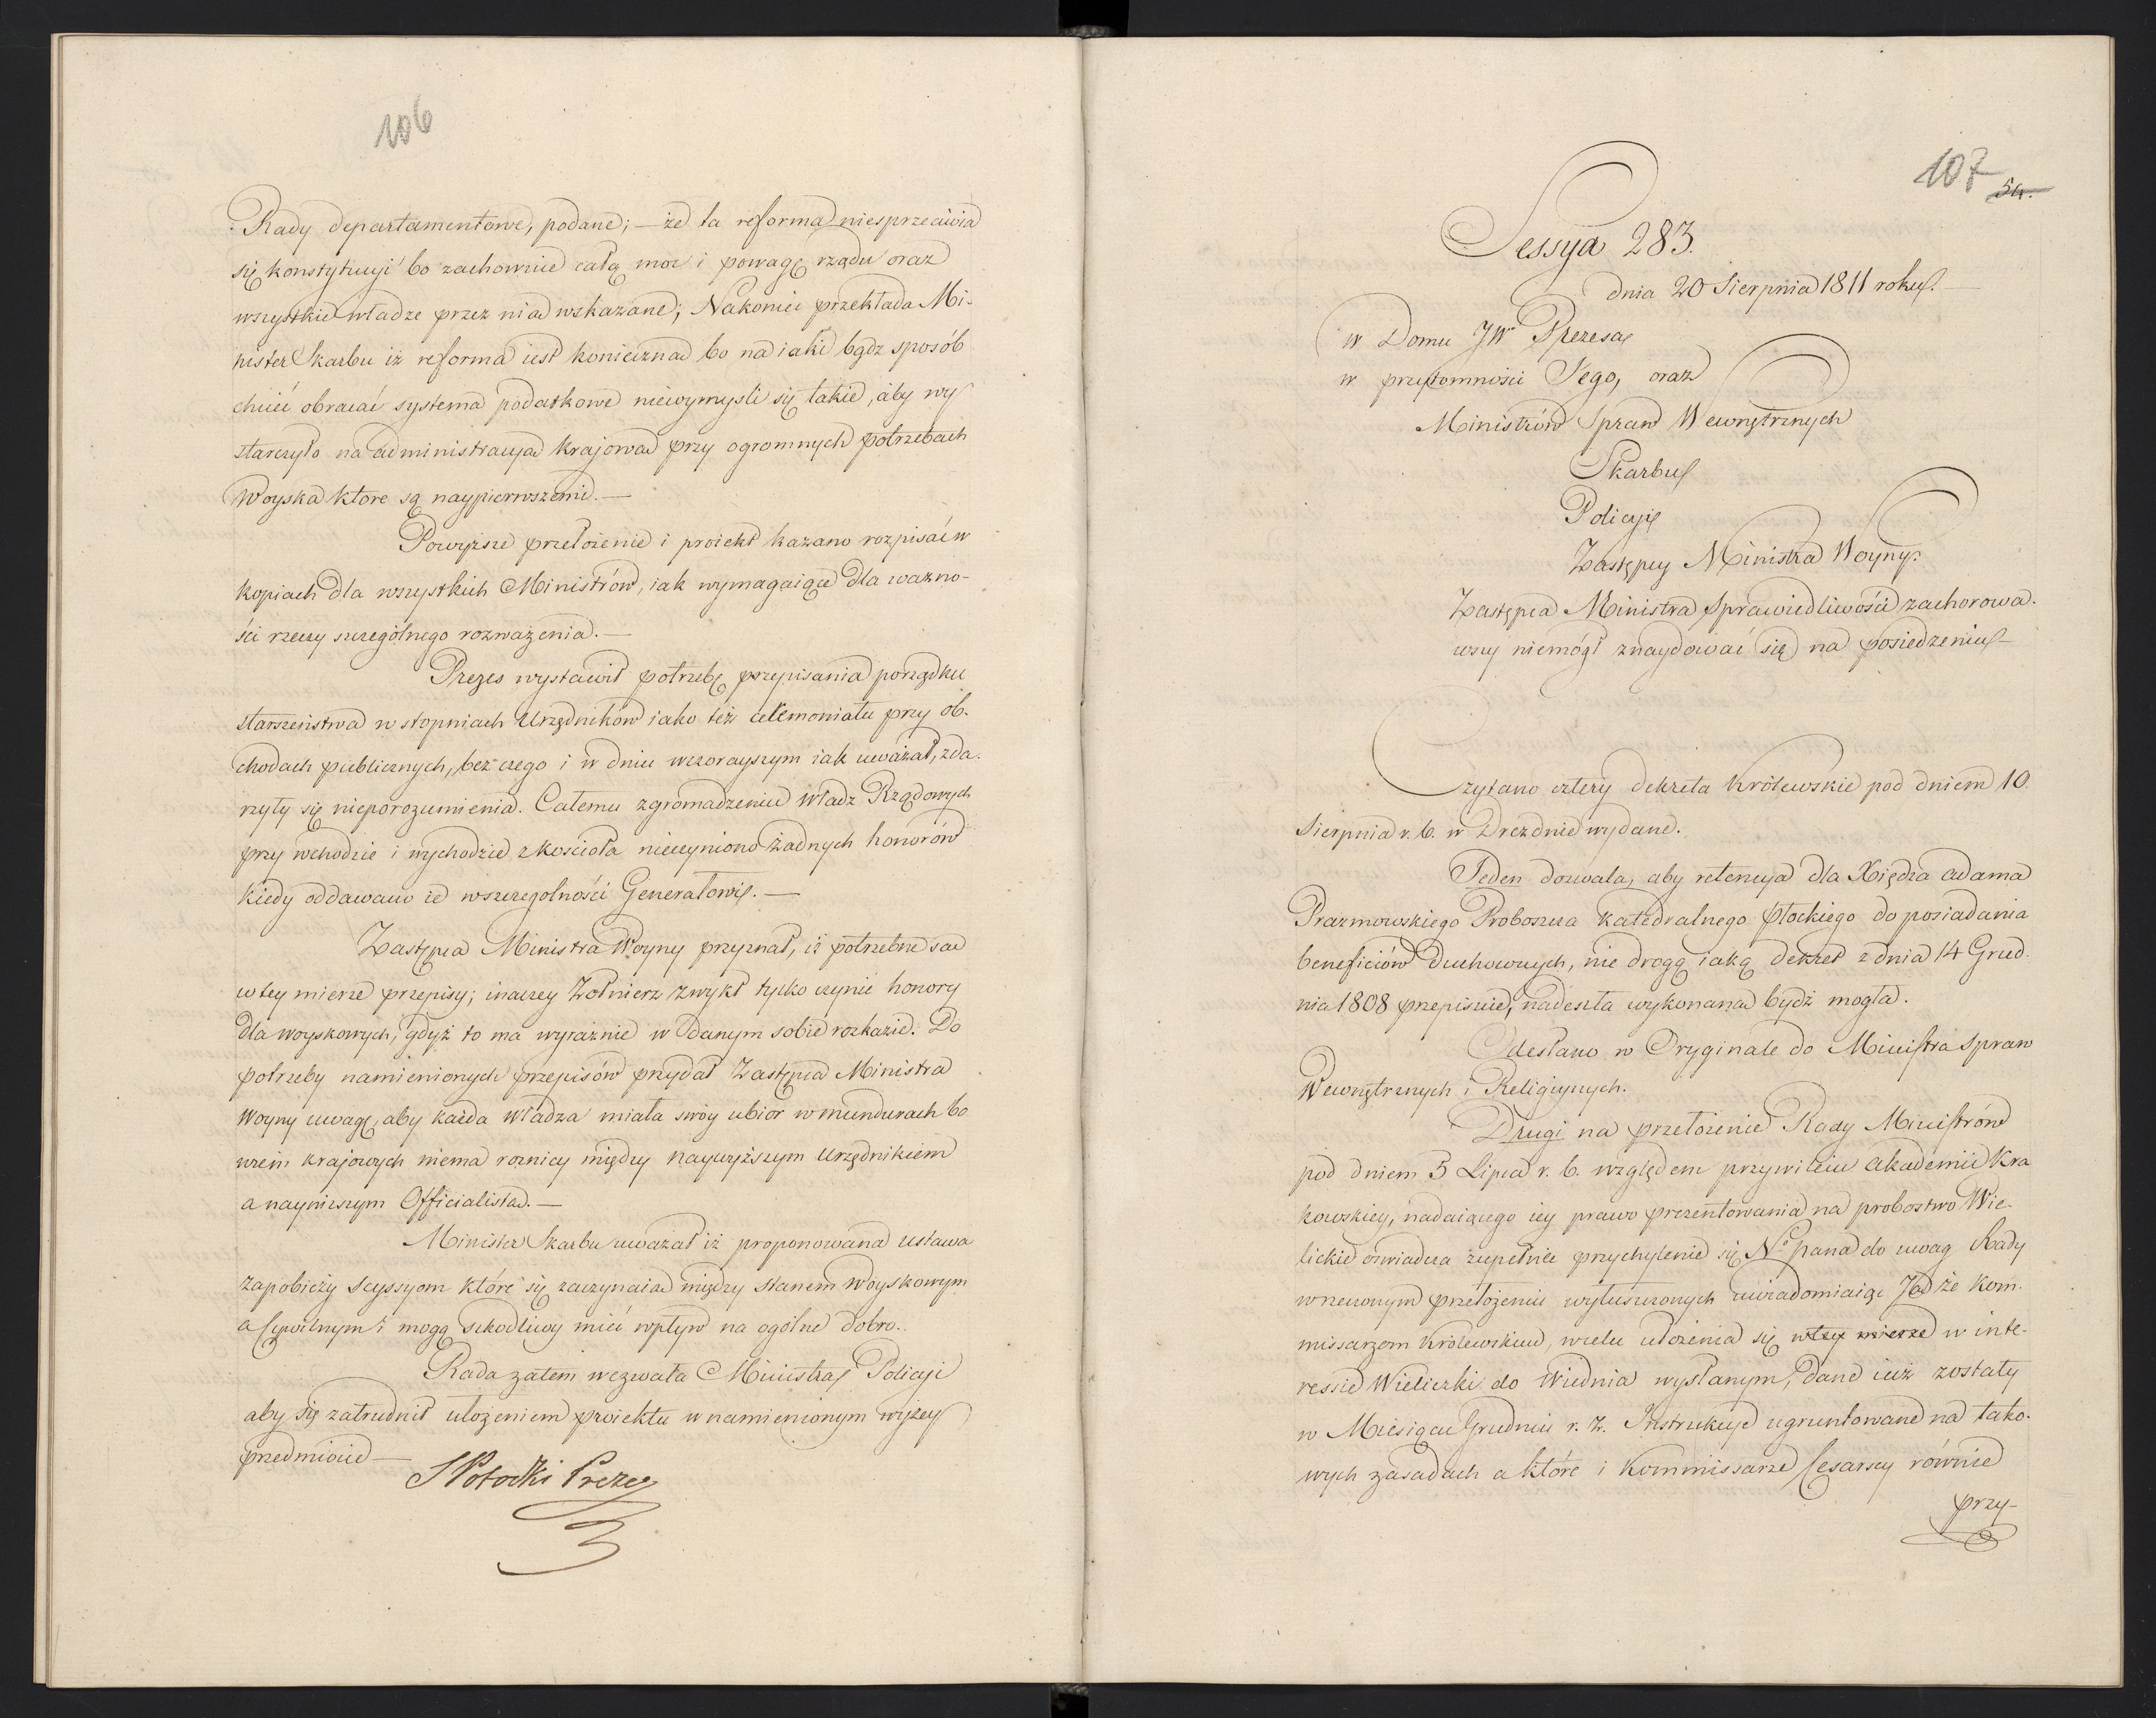 106
Rady departamentowe, podane; — że ta reforma niesprzeciwia
się konstytucyi bo zachowuie całą moc i powagę rządu oraz
wszystkie władze przez nia wskazane; Nakoniec przekłada Mi-
nister Skarbu iż reforma iest konieczna bo na iaki bądz sposób
chcieć obracać systema podatkowe niewymysli się takie, aby wy
starczyło na administracya krajowa przy ogromnych potrzebach
Woyska ktore są naypierwszemi. —
Powyższe przełożenie i proiekt kazano rozpisać w
kopiach dla wszystkich Ministrów, iak wymagaiące dla ważno-
ści rzeczy szczególnego rozważenia. —
Prezes wystawił potrzebę przepisania porządku
starszeństwa w stopniach Urzędników iako też ceremoniału przy ob-
chodach publicznych, bez czego i w dniu wczorayszym iak uważał, zda-
rzyły się nieporozumienia. Całemu zgromadzeniu władz Rządowych
przy wchodzie i wychodzie z kościoła nieczyniono żadnych honorów
kiedy oddawano ie wszczególności Generałowi. —
Zastępca Ministra Woyny przyznał, iż potrzebne sa
w tey mierze przepisy; inaczey Żołnierz zwykł tylko czynić honory
dla woyskowych, gdyż to ma wyraźnie w danym sobie rozkazie. Do
potrzeby namienionych przepisów przydał Zastępca Ministra
Woyny uwagę, aby każda władza miała swóy ubiór w mundurach bo
wrein krajowych niema rożnicy między naywyższym Urzędnikiem
a nayniszym Officialista. —
Minister Skarbu uważał iż proponowana ustawa
zapobieży scyssyom które się zaczynaia między stanem Woyskowym
a Cywilnym i mogą szkodliwy mieć wpływ na ogólne dobro.
Rada zatem wezwała Ministra Policyi
aby się zatrudnił ułożeniem proiektu w namienionym wyżey
przedmiocie —
S Potocki Prezes
107
54.
Sessya 283.
dnia 20 Sierpnia 1811 roku. —
w Domu JW Prezesa
w przytomności Jego, oraz
Ministrów Spraw Wewnętrznych
Skarbu
Policyi
Zastępcy Ministra Woyny.
Zastępca Ministra Sprawiedliwości zachorowa-
wszy niemógł znaydować się na posiedzeniu —
Czytano cztery dekreta Królewskie pod dniem 10
Sierpnia r. b. w Dreznie wydane.
Jeden dozwala, aby retencya dla Xiędza adama
Prazmowskiego Proboszcza Katedralnego Płockiego do posiadania
beneficiów Duchownych, nie drogą iaką dekret z dnia 14 Grud-
nia 1808 przepisuie, nadeszła wykonana bydź mogła.
Odesłano w Oryginale do Ministra Spraw
Wewnętrznych i Religiynych.
Drugi na przełożenie Rady Ministrów
pod dniem 5 Lipca r. b. względem przywileiu akademii Kra
kowskiey, nadaiącego iey prawo prezentowania na probostwo Wie-
lickie oswiadcza zupełnie przychylenie się No pana do uwag Rady
w rzeczonym przełożeniu wyłuszczonych uwiadomiaiąc Ją że Kom-
missarzom Królewskim, w celu ułożenia się w tey mierze w inte-
ressie Wieliczki do Wiednia wysłanym, dane iuż zostały
w Miesiącu Grudniu r. z. Instrukcye ugruntowane na tako-
wych zasadach a które i Kommissarze Cesarscy równie
przy-